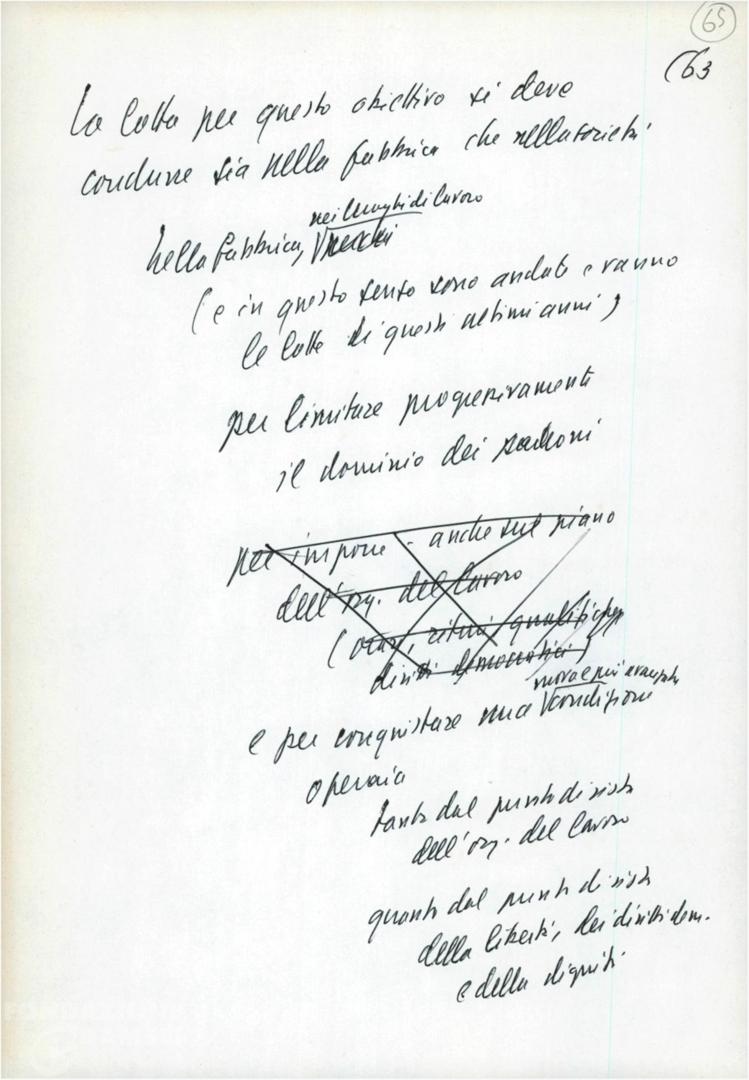 65
(63
La lotta per questo obiettivo si deve
condurre sia nella fabbrica che nella società
nei luoghi di lavoro
Nella fabbrica,
(e in questo senso sono andate e vanno
le lotte di questi ultimi anni)
per limitare progressivamente
il dominio dei padroni
per imporre - anche sul piano
dell'org. del lavoro
(orari, ritmi, qualifiche
diritti democratici)
nuova e più avanzata
e per conquistare una condizione
operaia
tanto dal punto di vista
dell'org. del lavoro
quanto dal punto di vista
della libertà, dei diritti dem.
e della dignità